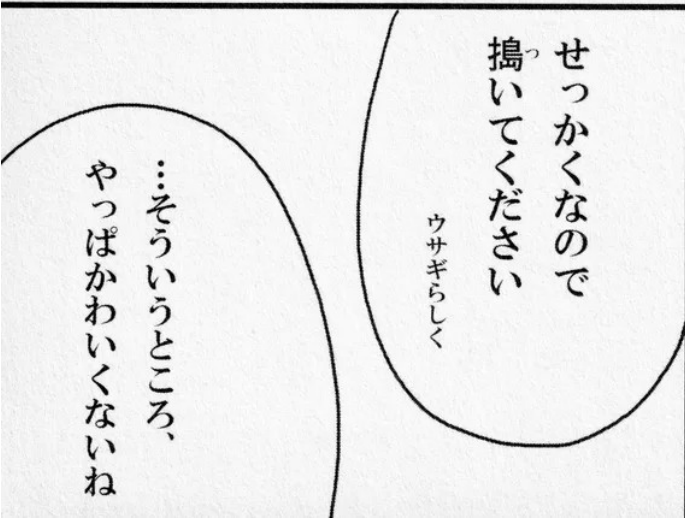 せっかくなので
搗いてください
ウサギらしく
…そういうところ、
やっぱかわいくないね